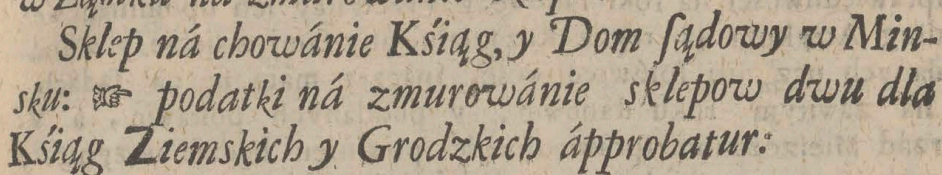 Sklep ná chowánie Kśiąg, y Dom ſądowy w Min-
sku: ☞ podatki ná zmurowánie sklepow dwu dla
Kśiąg Ziemskich y Grodzkich ápprobatur: